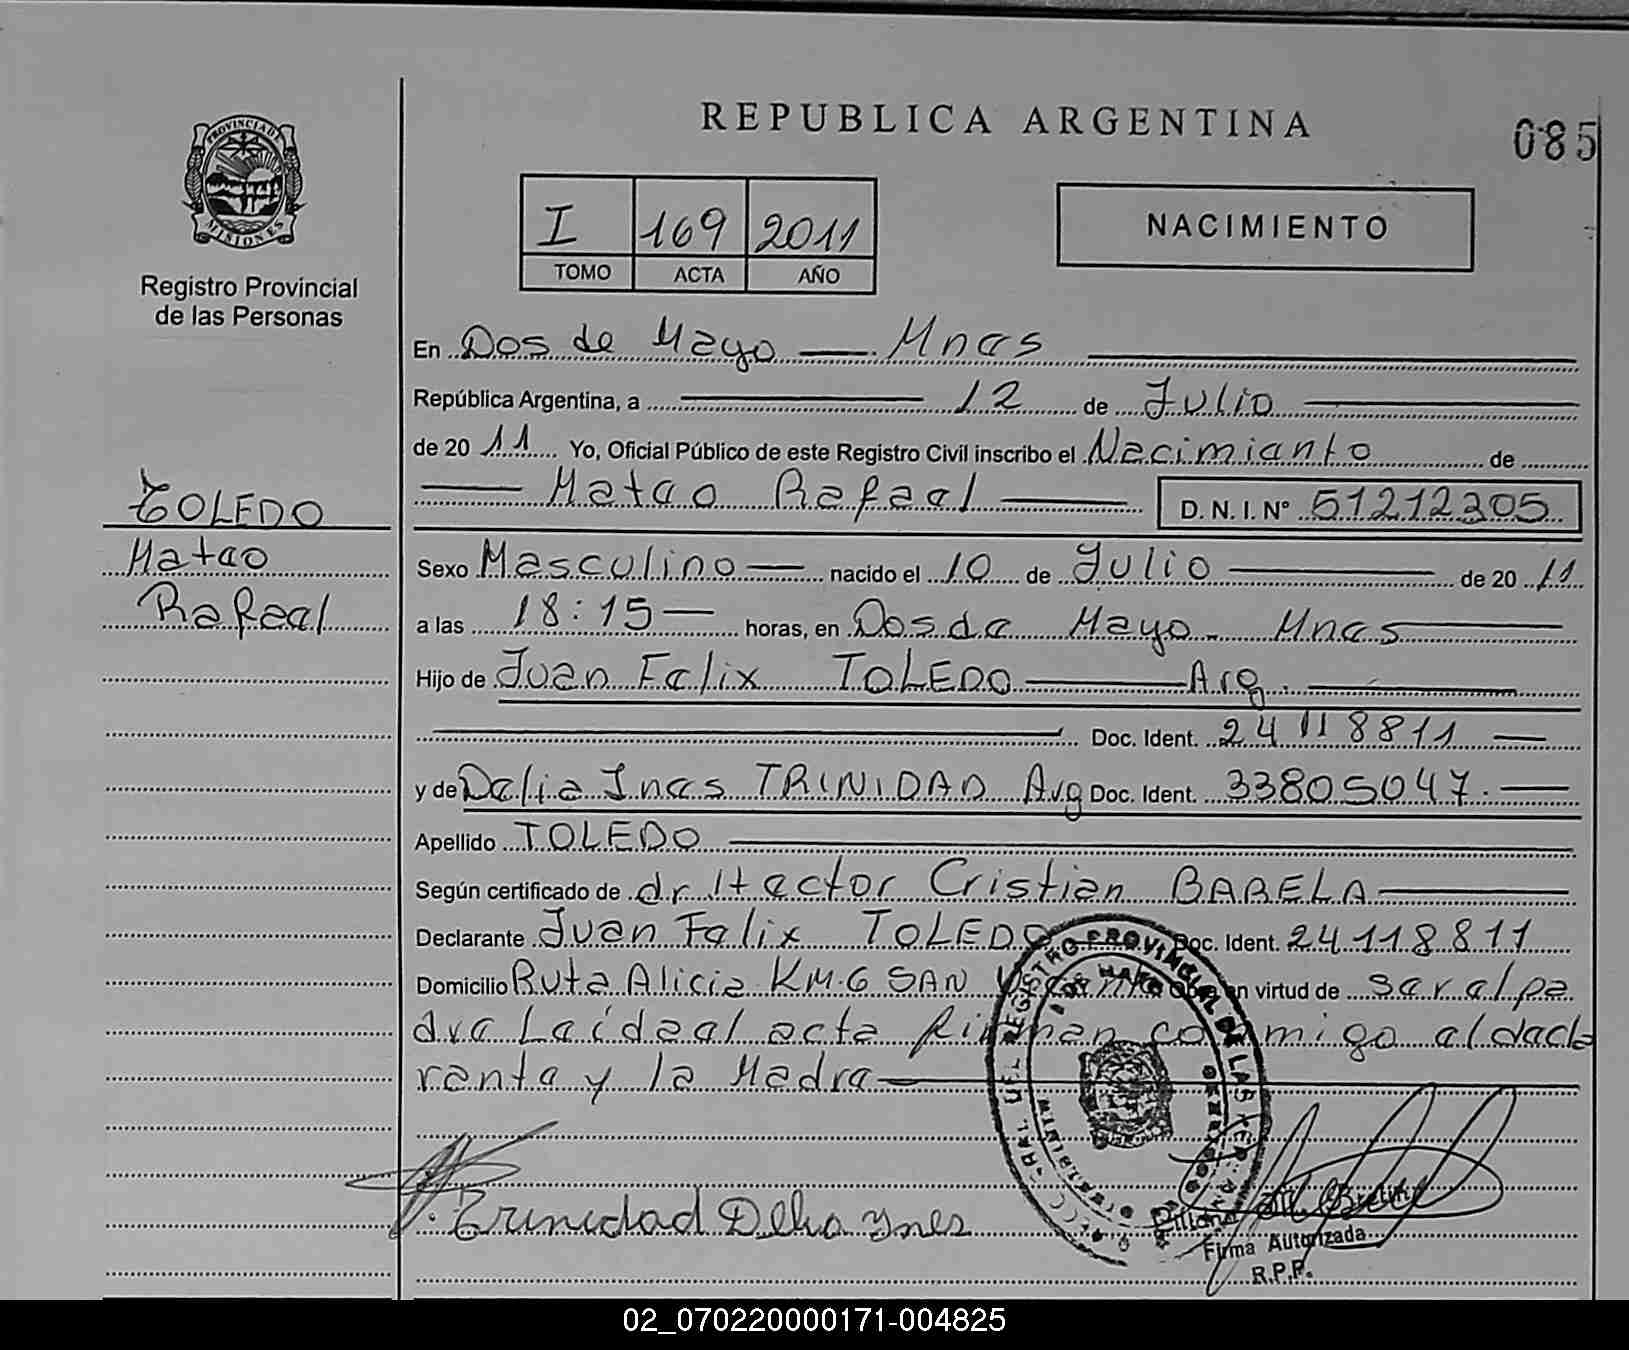 REPUBLICA ARGENTINA
085
PROVINCIA DE MISIONES
Registro Provincial
de las Personas
I 169 2011
TOMO ACTA AÑO
NACIMIENTO
En Dos de Mayo — Mnes
República Argentina, a 12 de Julio
de 20 11 Yo, Oficial Público de este Registro Civil inscribo el Nacimiento de
Mateo Rafael D.N.I. N° 51212305
TOLEDO
Mateo
Rafael
Sexo Masculino — nacido el 10 de Julio de 20 11
a las 18:15 — horas, en Dos de Mayo - Mnes
Hijo de Juan Felix TOLEDO — Arg.
Doc. Ident. 24118811 —
y de Delia Ines TRINIDAD Arg Doc. Ident. 33805047. —
Apellido TOLEDO
Según certificado de dr Hector Cristian BARELA
Declarante Juan Felix TOLEDO Doc. Ident. 24118811
Domicilio Ruta Alicia KM.6 SAN Vicente Obra en virtud de ser el pa
dre La ídeal acta firman conmigo al decla
rante y la Madre
REGISTRO PROVINCIAL DE LAS PER
Trinidad Delia Ynes
Firma Autorizada
R.P.P.
02_070220000171-004825